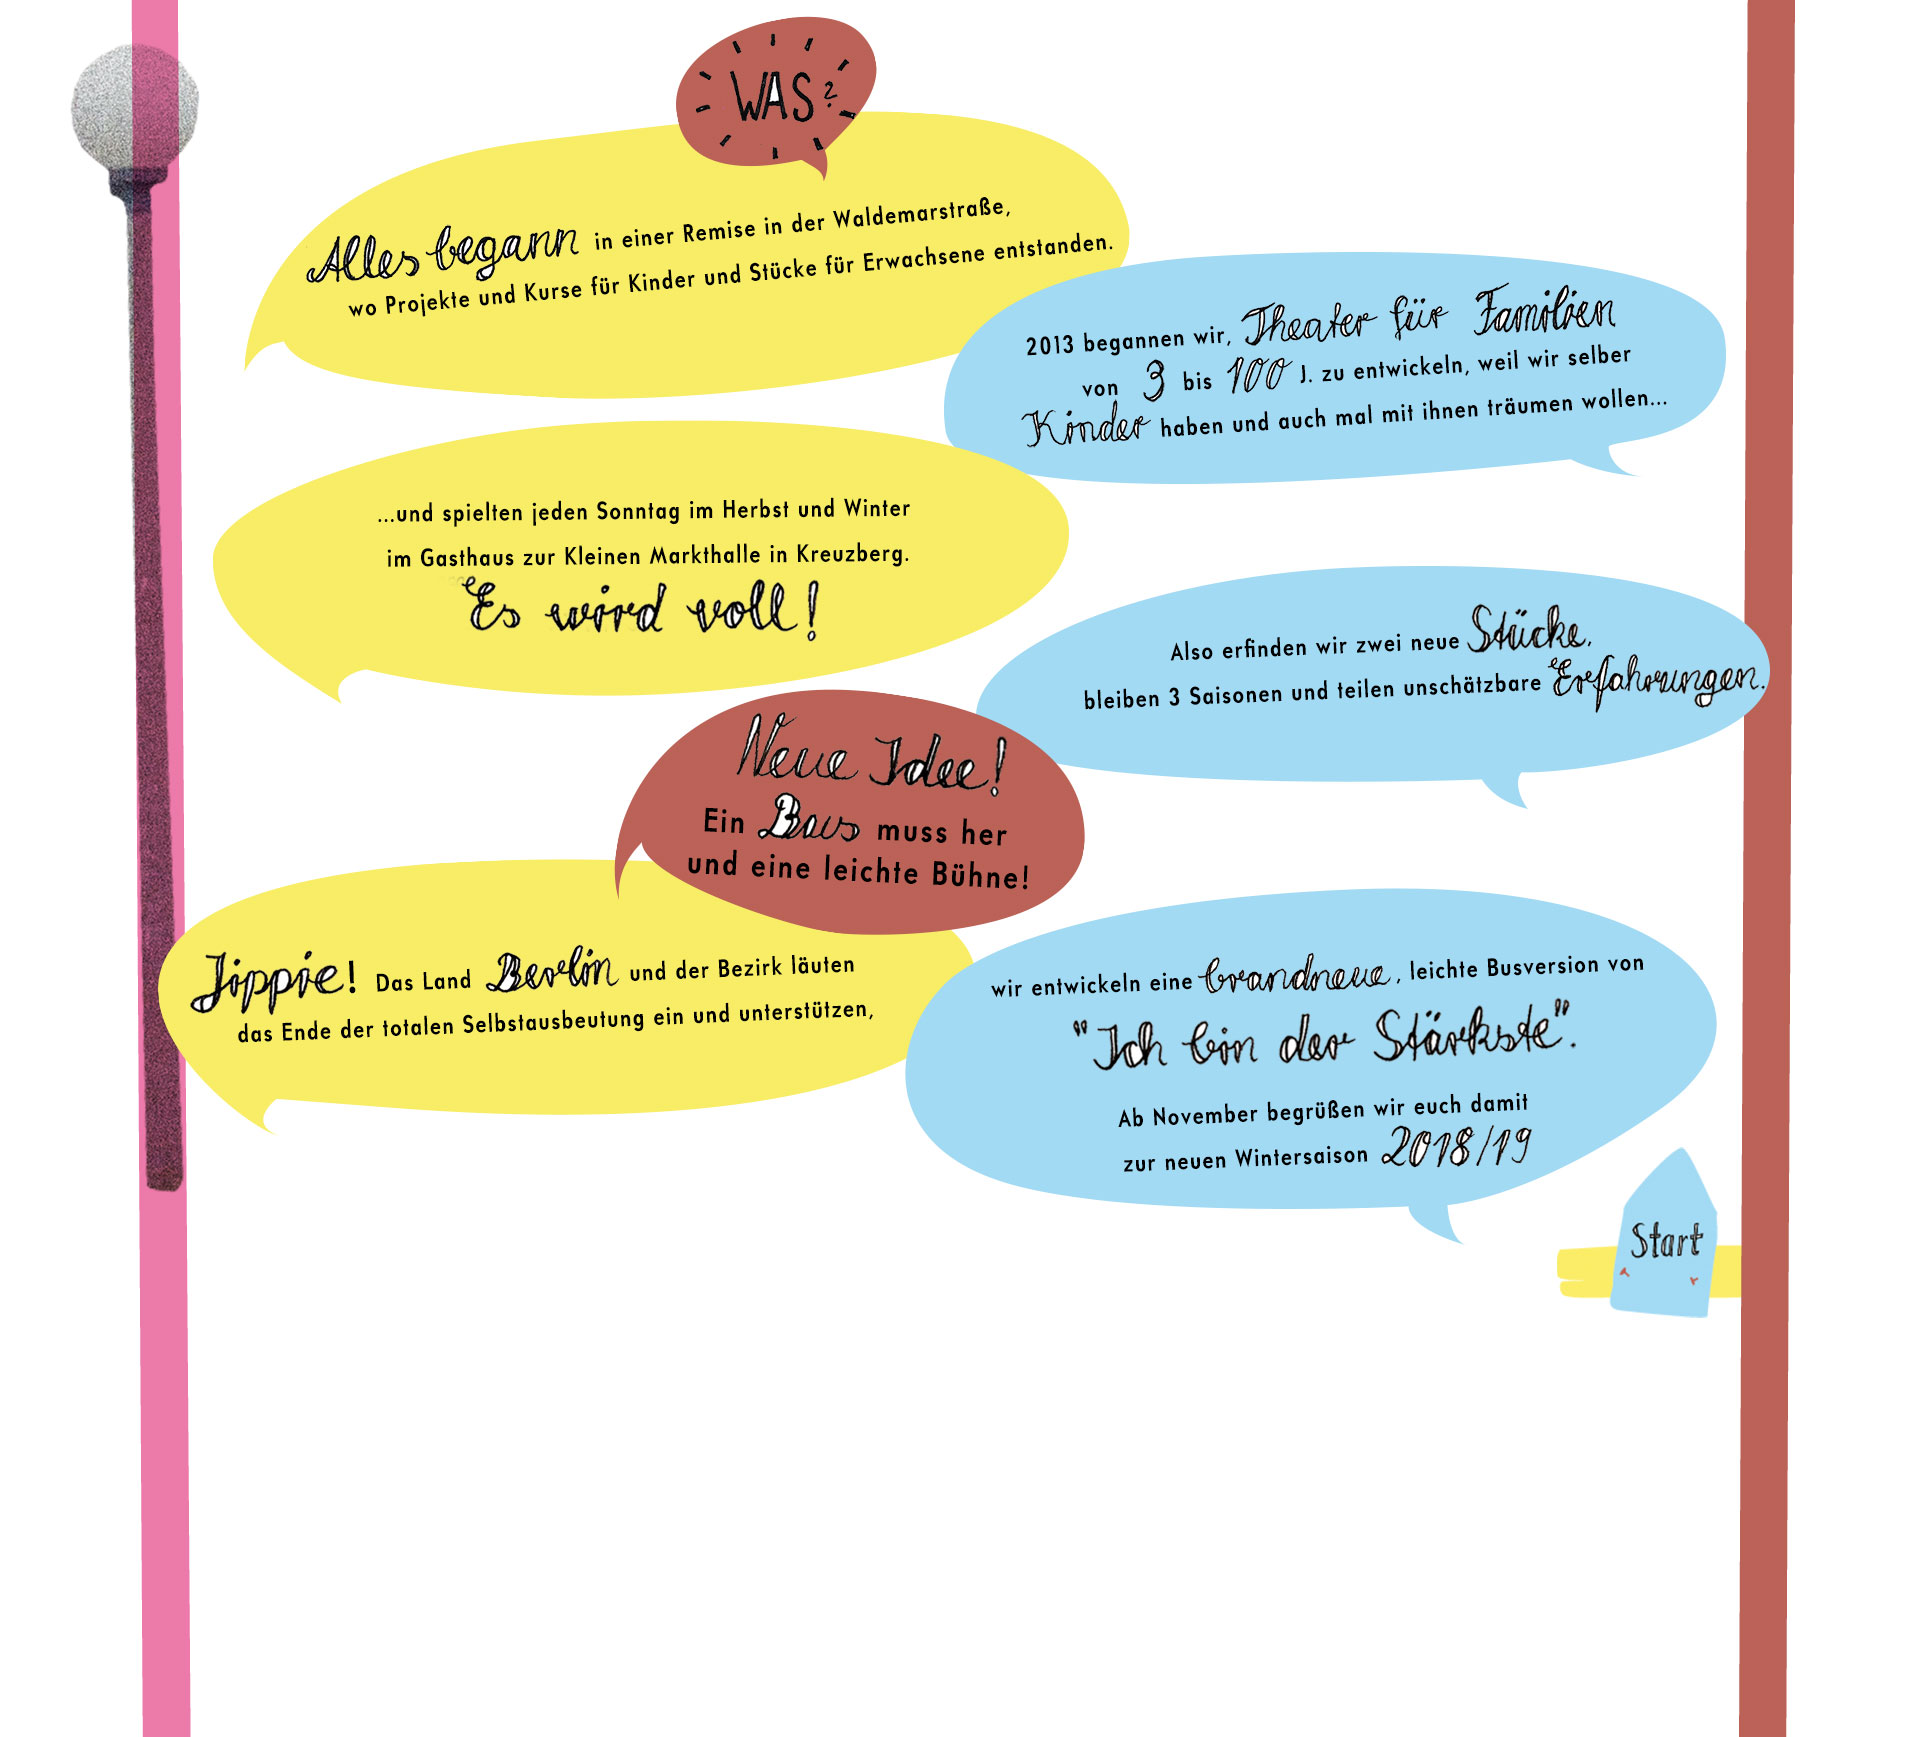 WAS?
Alles begann in einer Remise in der Waldemarstraße,
wo Projekte und Kurse für Kinder und Stücke für Erwachsene entstanden.
2013 begannen wir, Theater für Familien
von 3 bis 100 J. zu entwickeln, weil wir selber
Kinder haben und auch mal mit ihnen träumen wollen...
...und spielten jeden Sonntag im Herbst und Winter
im Gasthaus zur Kleinen Markthalle in Kreuzberg.
Es wird voll!
Also erfinden wir zwei neue Stücke,
bleiben 3 Saisonen und teilen unschätzbare Erfahrungen.
Neue Idee!
Ein Bus muss her
und eine leichte Bühne!
Jippie! Das Land Berlin und der Bezirk läuten
das Ende der totalen Selbstausbeutung ein und unterstützen,
wir entwickeln eine brandneue, leichte Busversion von
"Ich bin der Stärkste".
Ab November begrüßen wir euch damit
zur neuen Wintersaison 2018/19
Start